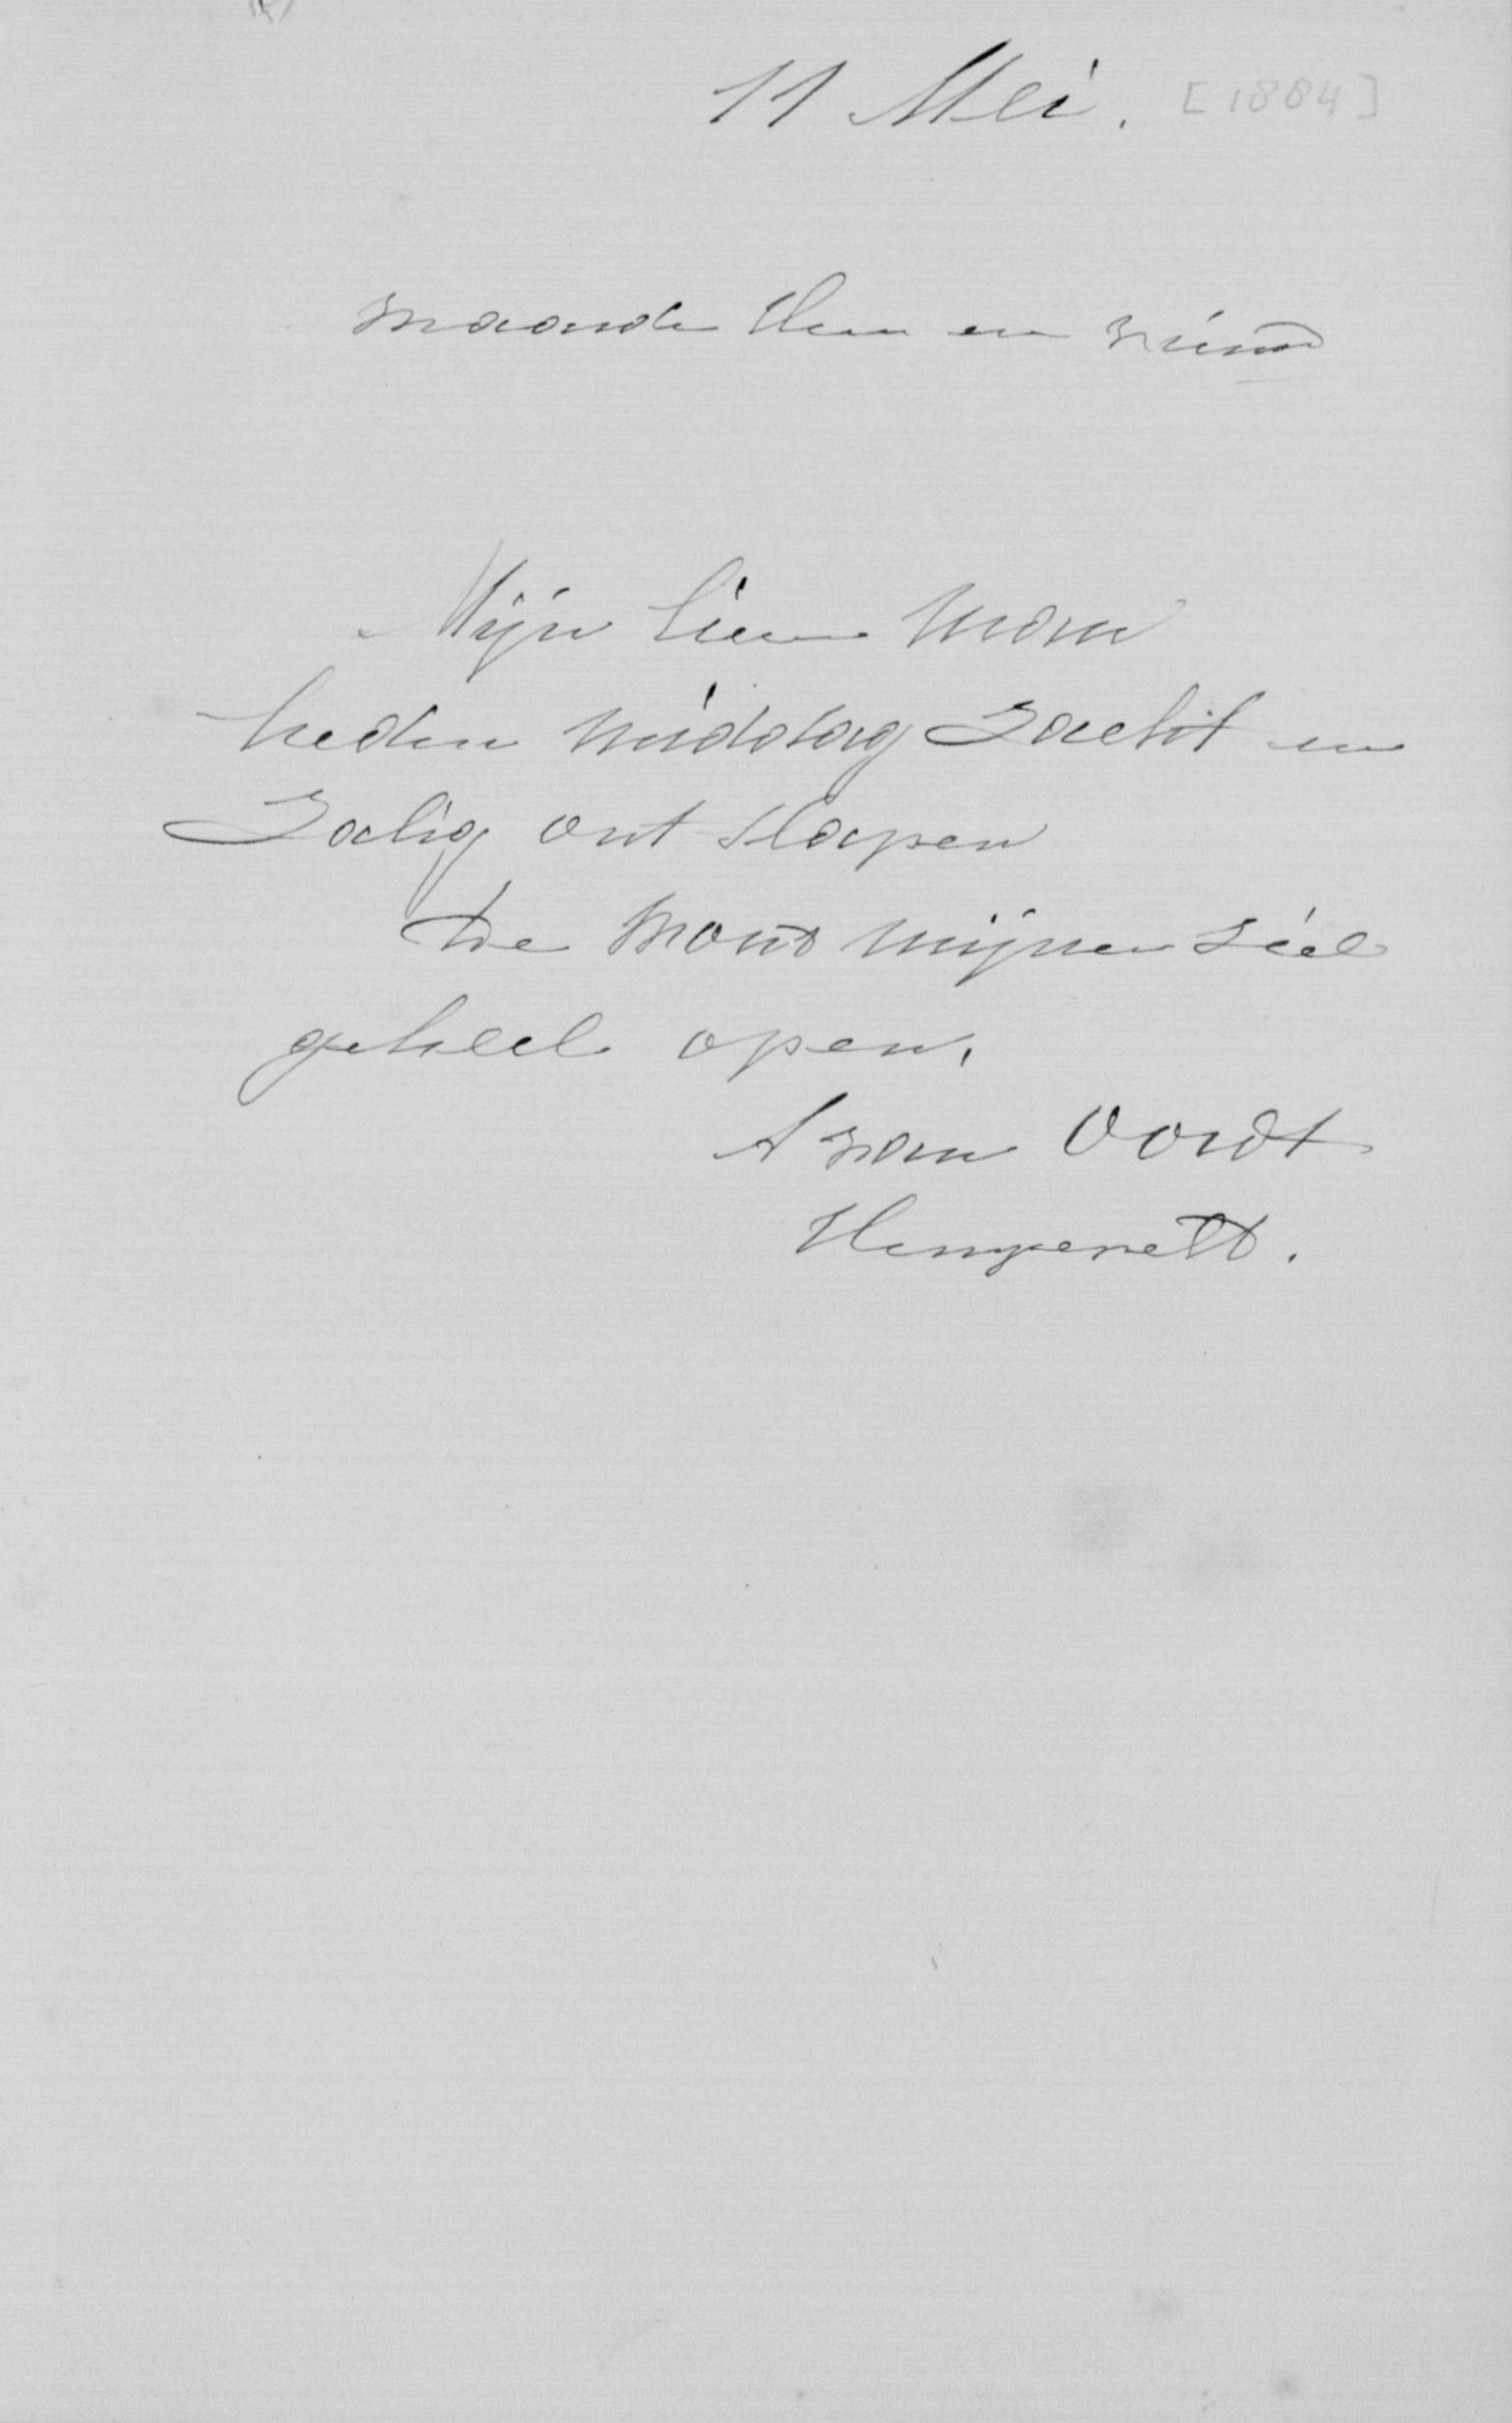 11 Mei. [1884]
Waarde Heer en vriend
Mijn lieve Man
heden middag Zacht en
Zalig ont slapen
De wond mijner Ziel
geheel open.
A van Oordt
Hengeveldt.